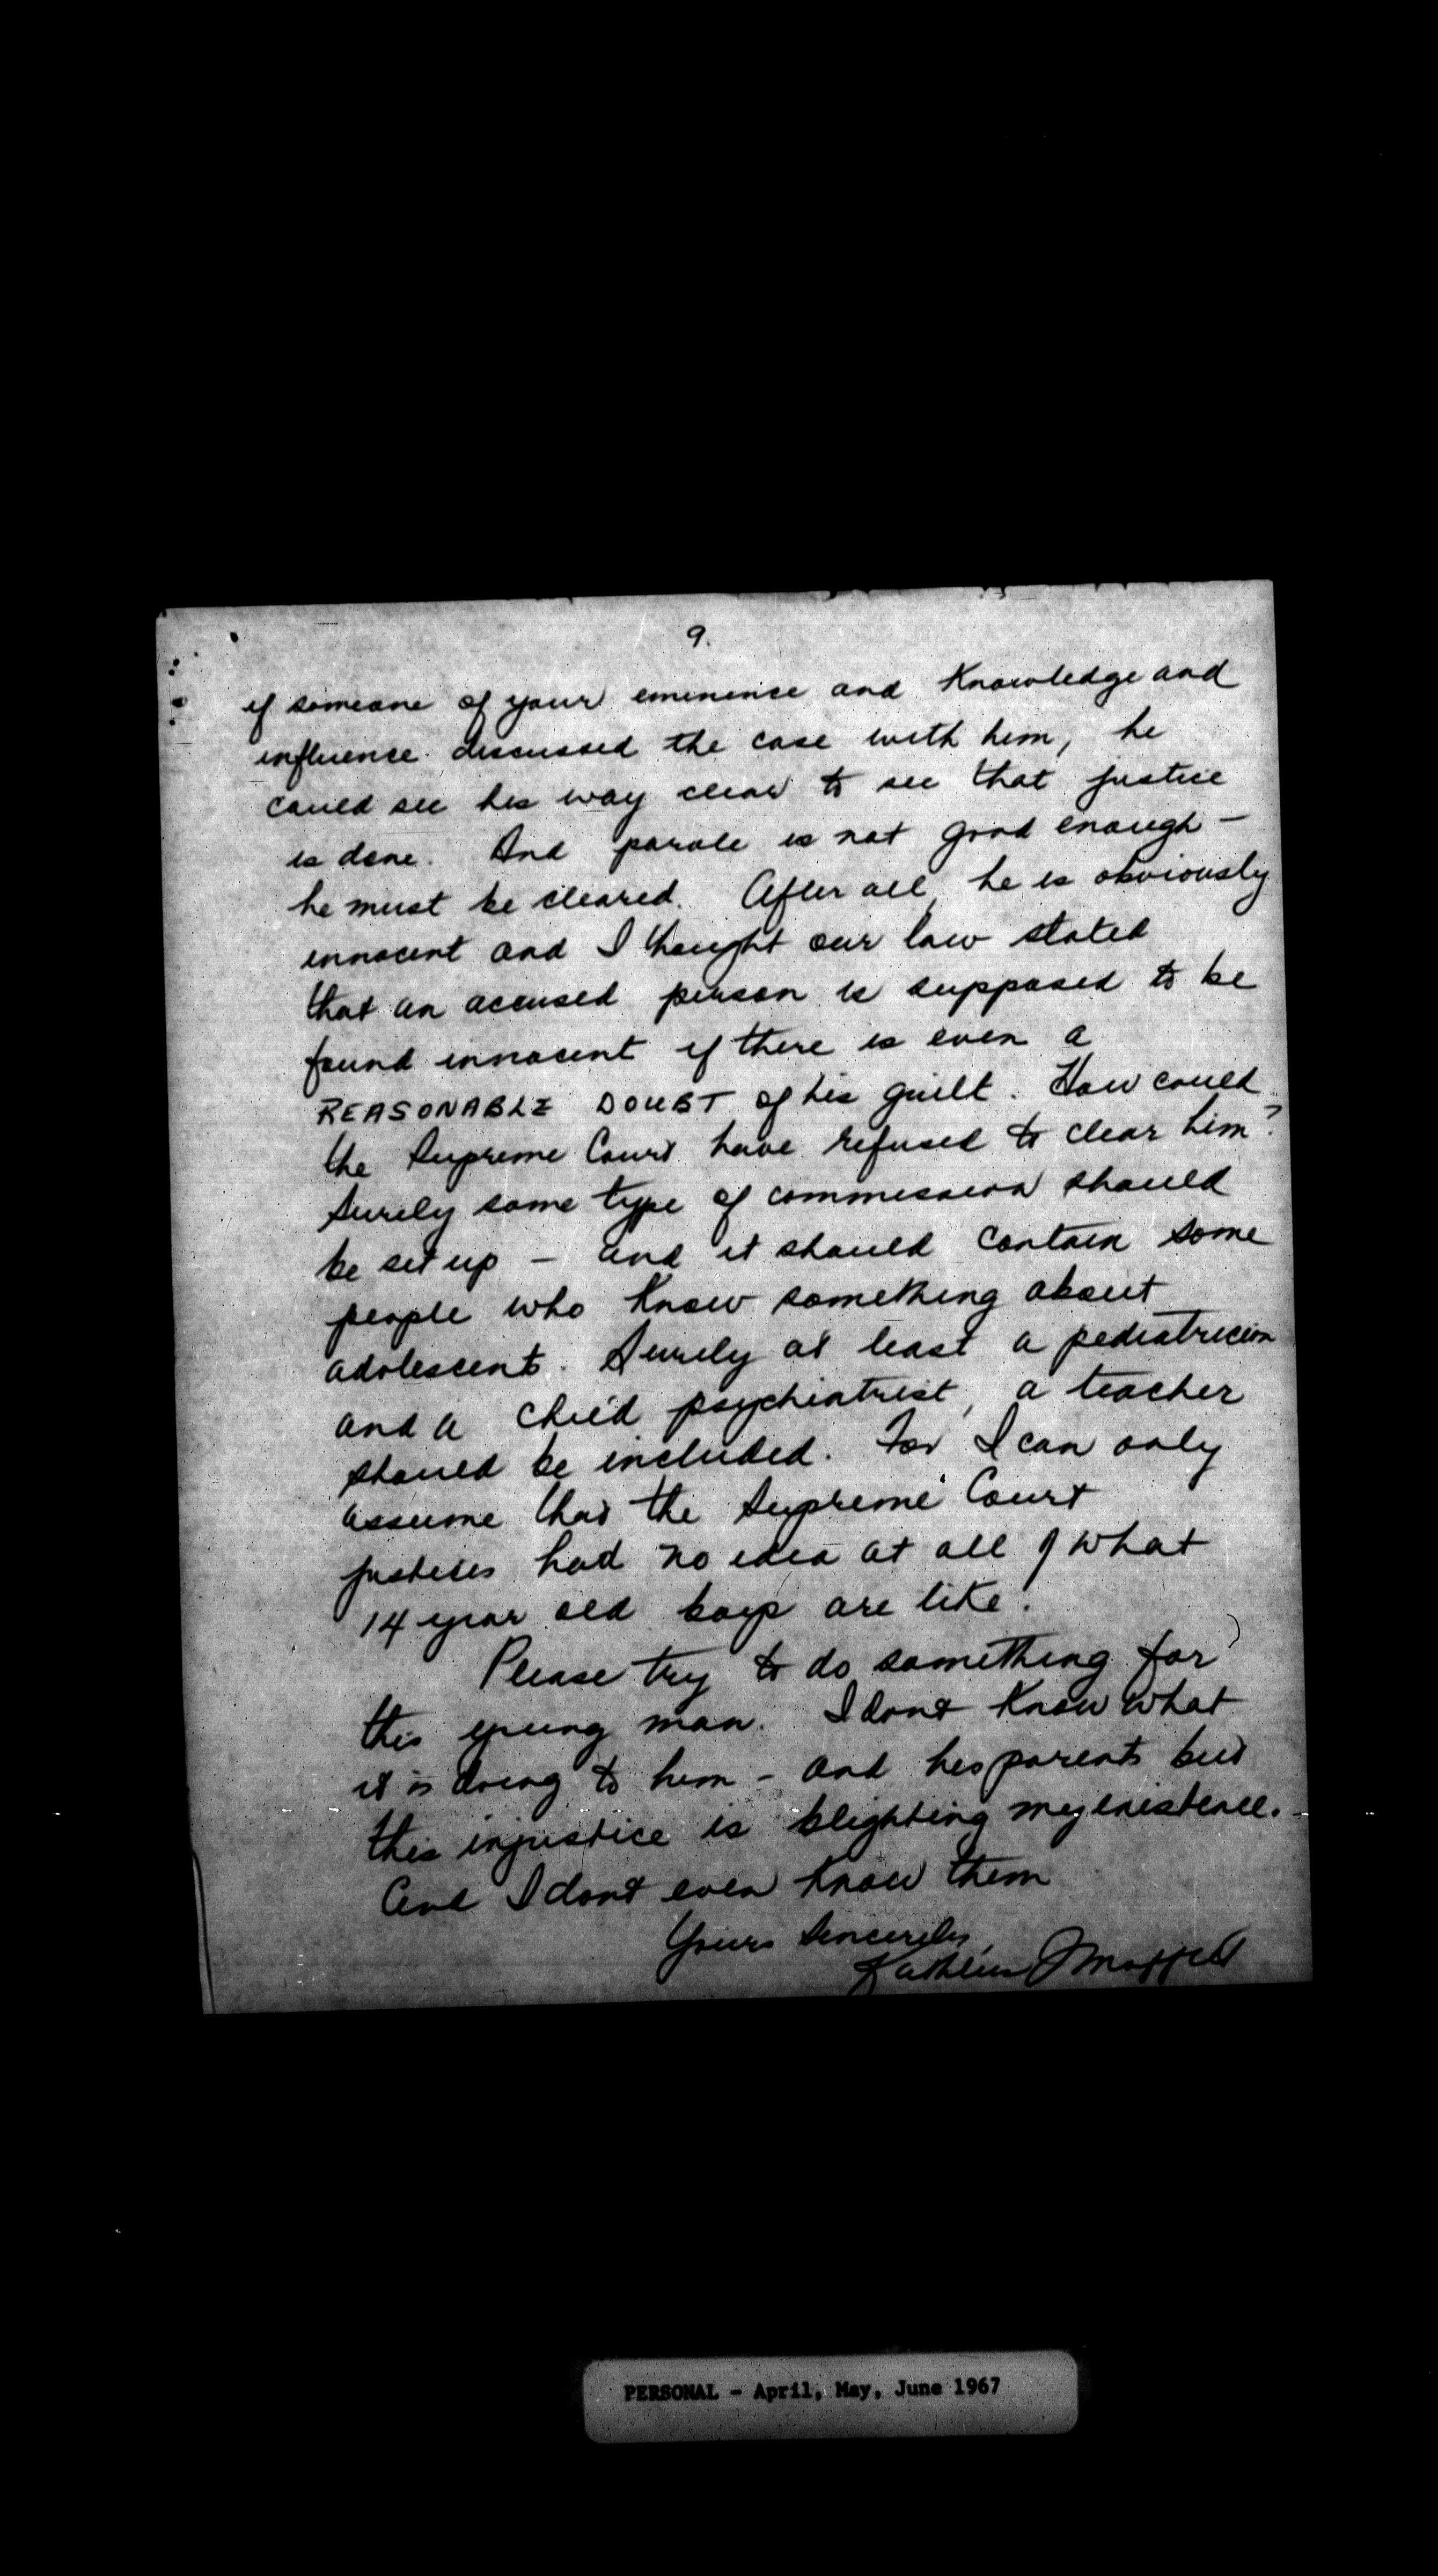 9.
if someone of your eminence and Knowledge and
influence discussed the case with him, he
could see his way clear to see that justice
is done. And parole is not good enough -
he must be cleared. After all, he is obviously
innocent and I thought our law stated
that an accused person is supposed to be
found innocent if there is even a
REASONABLE DOUBT of his guilt. How could
the Supreme Court have refused to clear him?
Surely some type of commission should
be set up - and it should contain some
people who know something about
adolescents. Surely at least a pediatrician
and a child psychiatrist, a teacher
should be included. For I can only
assume that the Supreme Court
justices had no idea at all of what
14 year old boys are like!
Please try to do something for
this young man. I dont know what
it is doing to him - and his parents but
this injustice is blighting my existence.
And I dont even know them
Yours Sincerely,
Kathleen
PERSONAL - April, May, June 1967